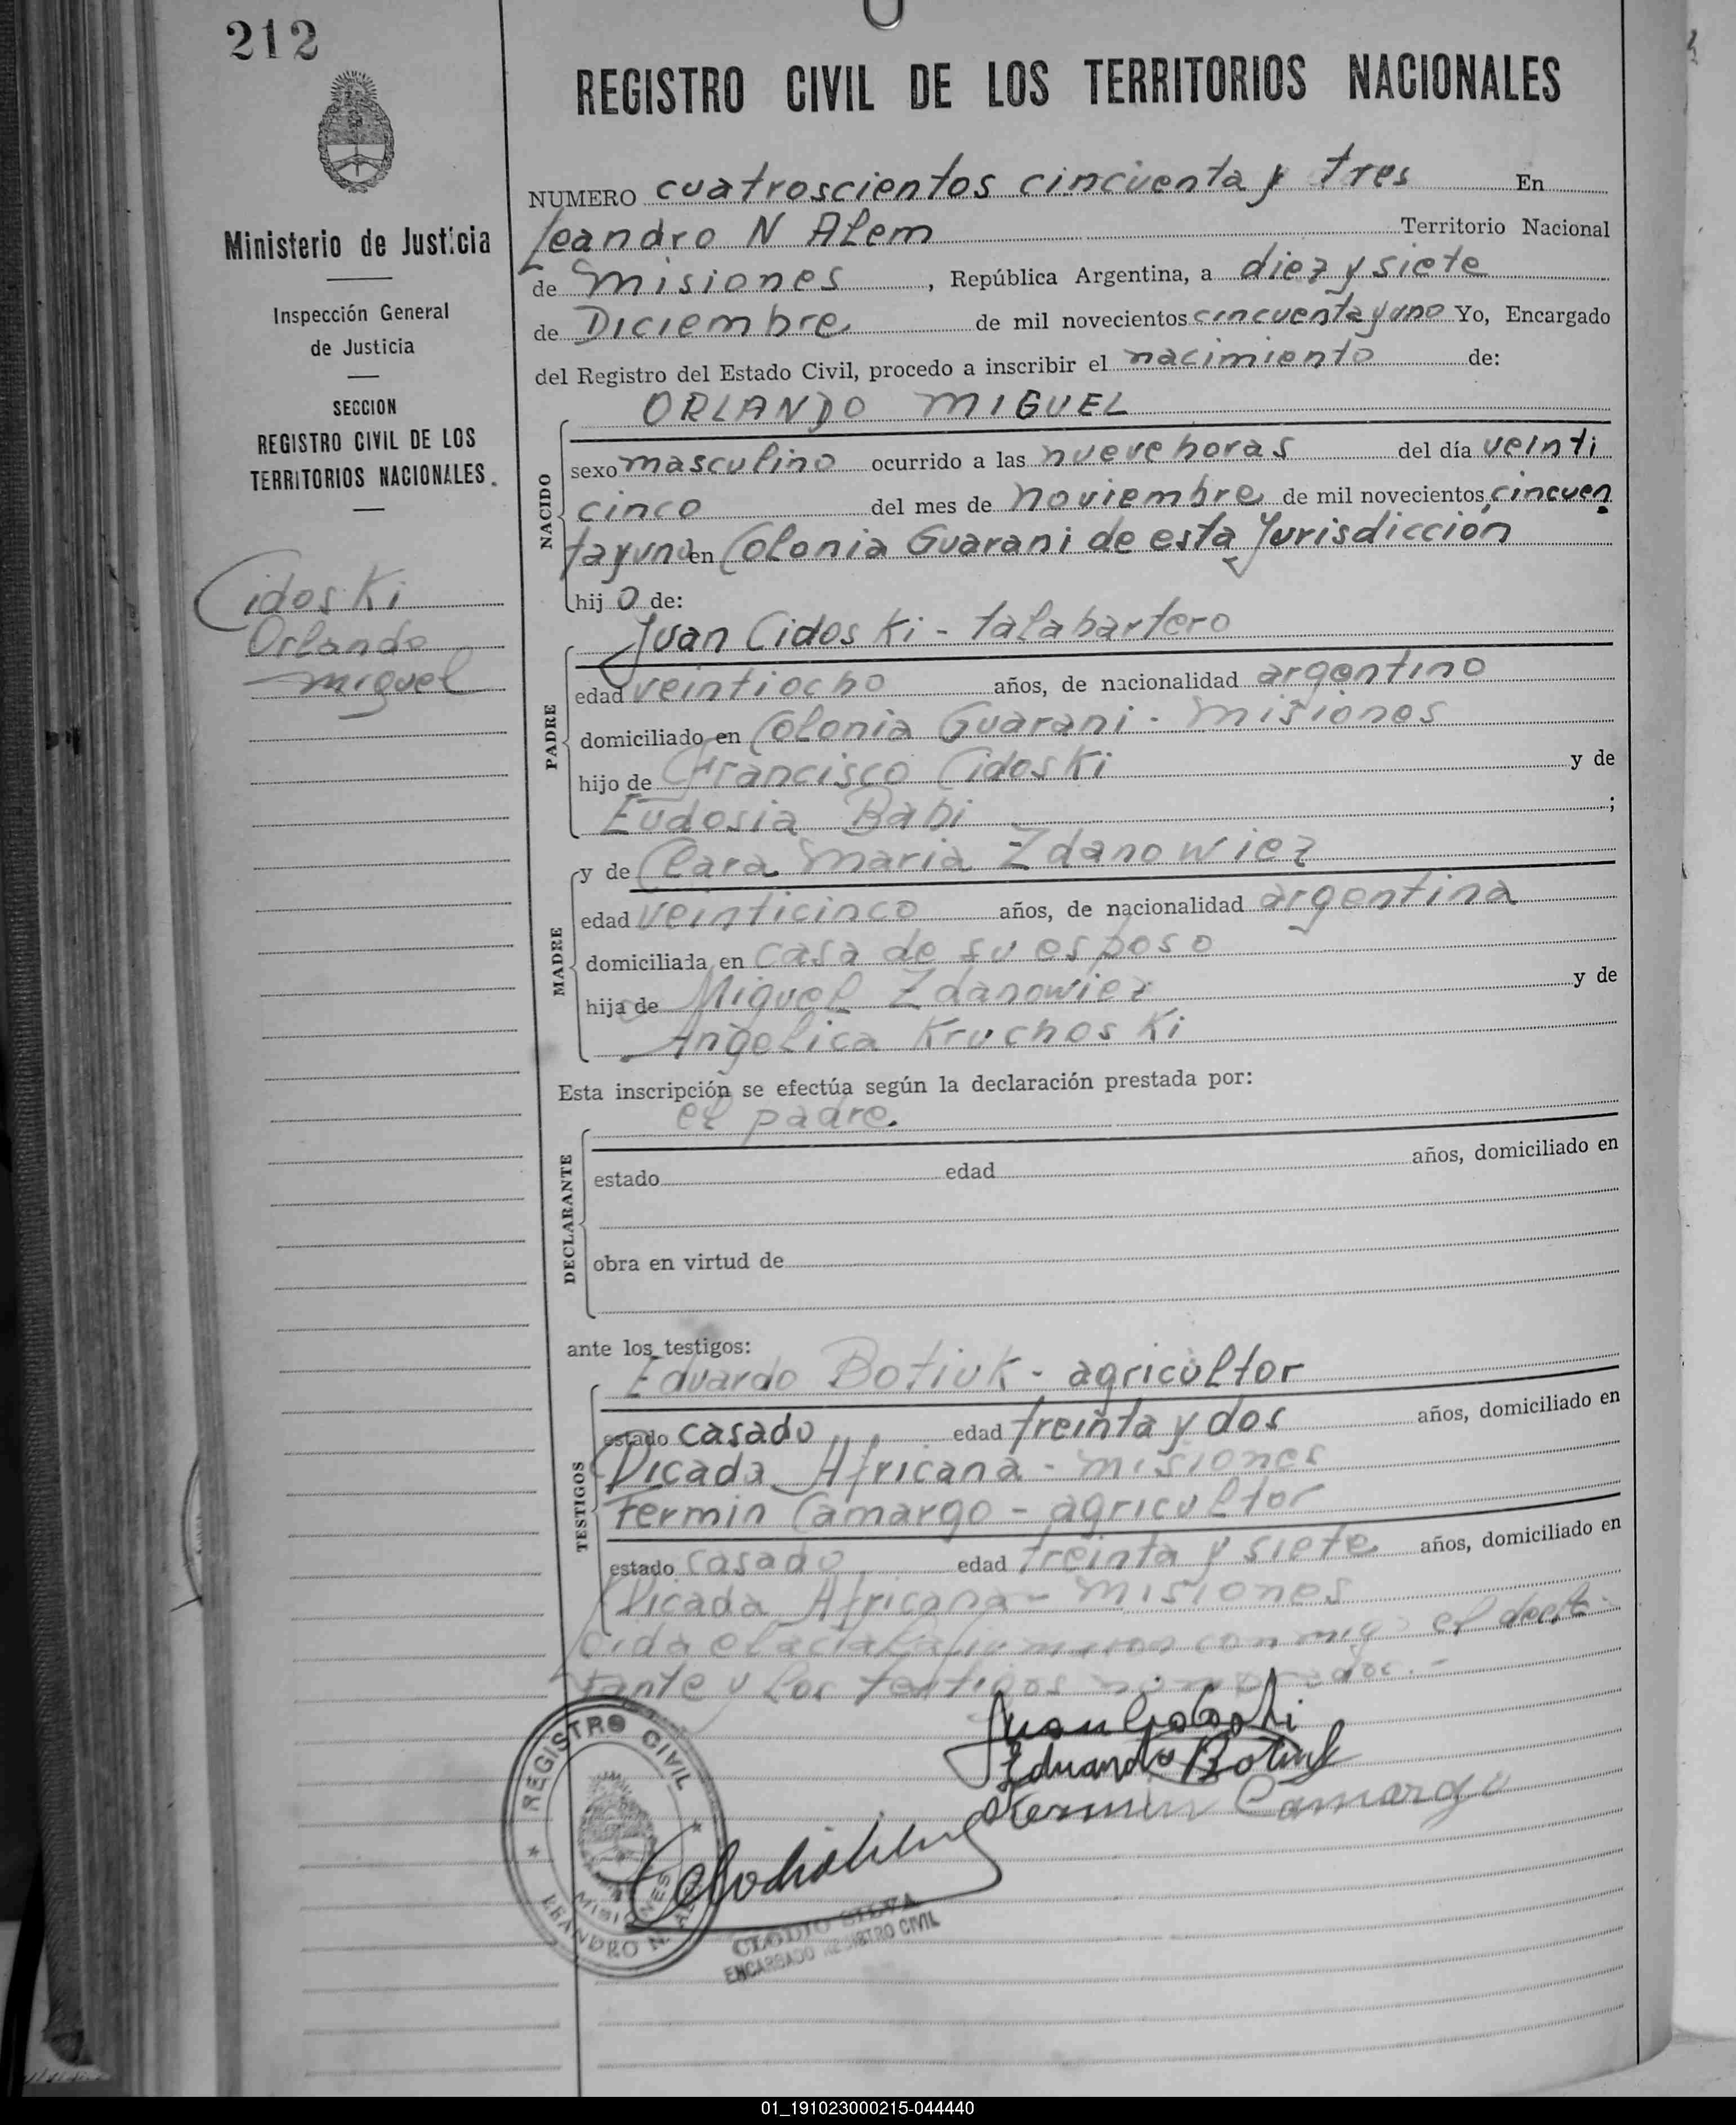 212
REGISTRO CIVIL DE LOS TERRITORIOS NACIONALES
Ministerio de Justicia
Inspección General
de Justicia
SECCION
REGISTRO CIVIL DE LOS
TERRITORIOS NACIONALES.
Cidoski
Orlando
Miguel
NUMERO cuatroscientos cincuenta y tres En
Leandro N Alem Territorio Nacional
de Misiones, República Argentina, a diez y siete
de Diciembre de mil novecientos cincuenta y uno Yo, Encargado
del Registro del Estado Civil, procedo a inscribir el nacimiento de:
ORLANDO MIGUEL
NACIDO
sexo masculino ocurrido a las nueve horas del día veinti
cinco del mes de noviembre de mil novecientos cincuen
ta y uno en Colonia Guarani de esta Jurisdicción
hijo de:
Juan Cidoski - talabartero
PADRE
edad veintiocho años, de nacionalidad argentino
domiciliado en Colonia Guarani - Misiones
hijo de Francisco Cidoski y de
Eudosia Babi ;
MADRE
y de Clara Maria Zdanowiez
edad veinticinco años, de nacionalidad argentina
domiciliada en casa de su esposo
hija de Miguel Zdanowiez y de
Angelica Kruchoski
Esta inscripción se efectúa según la declaración prestada por:
el padre.
DECLARANTE
estado edad años, domiciliado en
obra en virtud de
ante los testigos:
TESTIGOS
Eduardo Botiuk - agricultor
estado casado edad treinta y dos años, domiciliado en
Picada Africana - Misiones
Fermin Camargo - agricultor
estado casado edad treinta y siete años, domiciliado en
Picada Africana - Misiones
Leida el acta la firmaron conmigo el decla-
rante y los testigos nombrados.-
Juan Cidoski
Eduardo Botiuk
Fermin Camargo
REGISTRO CIVIL
MISIONES
LEANDRO N. ALEM
CLODIO SILVA
ENCARGADO REGISTRO CIVIL
01_191023000215-044440